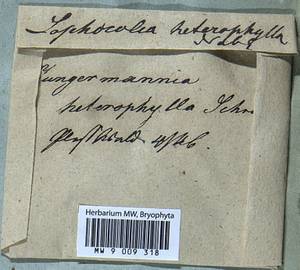 Lophocolea heterophylla
Jungermannia
heterophylla Schr
Herbarium MW, Bryophyta
MW 9 009 318